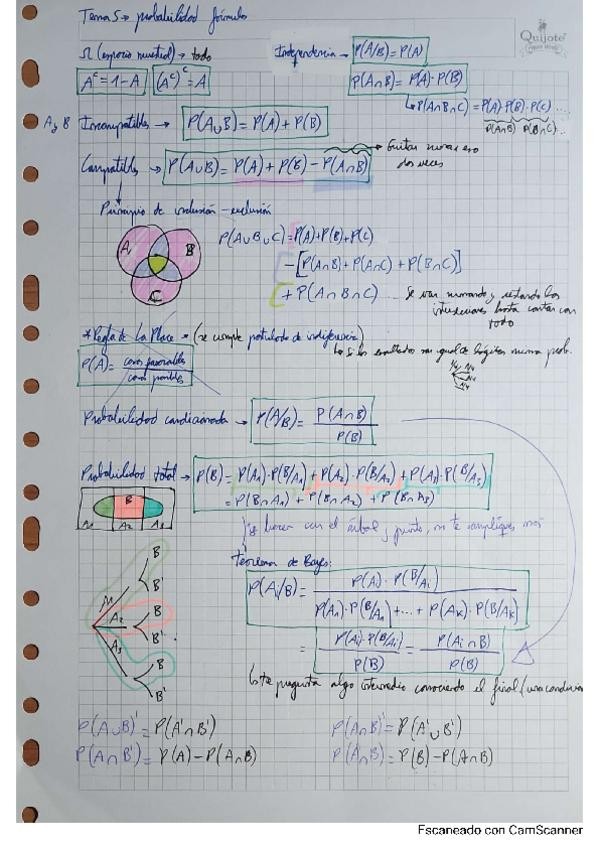 Tema 5 → probabilidad fórmulas
Quijote
Ω (espacio muestral) → todo
Independencia → P(A/B) = P(A)
Aᶜ = 1 - A (Aᶜ)ᶜ = A
P(A∩B) = P(A)·P(B)
↳ P(A∩B∩C) = P(A)·P(B)·P(C) ...
P(A∩B) P(B∩C) ...
A y B Incompatibles → P(A∪B) = P(A) + P(B)
Compatibles → P(A∪B) = P(A) + P(B) - P(A∩B) → Evitar sumar eso
dos veces
Principio de inclusión-exclusión
A B C
P(A∪B∪C) = P(A) + P(B) + P(C)
- [P(A∩B) + P(A∩C) + P(B∩C)]
+ P(A∩B∩C) ... Se van sumando y restando las
intersecciones hasta contar con
todo
* Regla de La Place * (se cumple postulado de indiferencia)
↳ Si los resultados son igual de lógicos misma prob.
P(A) = casos favorables / casos posibles
1/4 1/4
1/4 1/4
Probabilidad condicionada → P(A/B) = P(A∩B) / P(B)
Probabilidad total → P(B) = P(A₁)·P(B/A₁) + P(A₂)·P(B/A₂) + P(A₃)·P(B/A₃)
= P(B∩A₁) + P(B∩A₂) + P(B∩A₃)
B
A₁ A₂ A₃
hacer con el árbol y punto, no te compliques más
Teorema de Bayes:
P(Ai/B) = P(A)·P(B/Ai) / P(A₁)·P(B/A₁) + ... + P(Ak)·P(B/Ak)
= P(Ai)·P(B/Ai) / P(B) = P(Ai∩B) / P(B)
A₁ B B'
A₂ B B'
A₃ B B'
te pregunta algo intermedio conociendo el final (una condición
P(A∪B)' = P(A'∩B') P(A∩B)' = P(A'∪B')
P(A∩B') = P(A) - P(A∩B) P(A'∩B) = P(B) - P(A∩B)
Escaneado con CamScanner